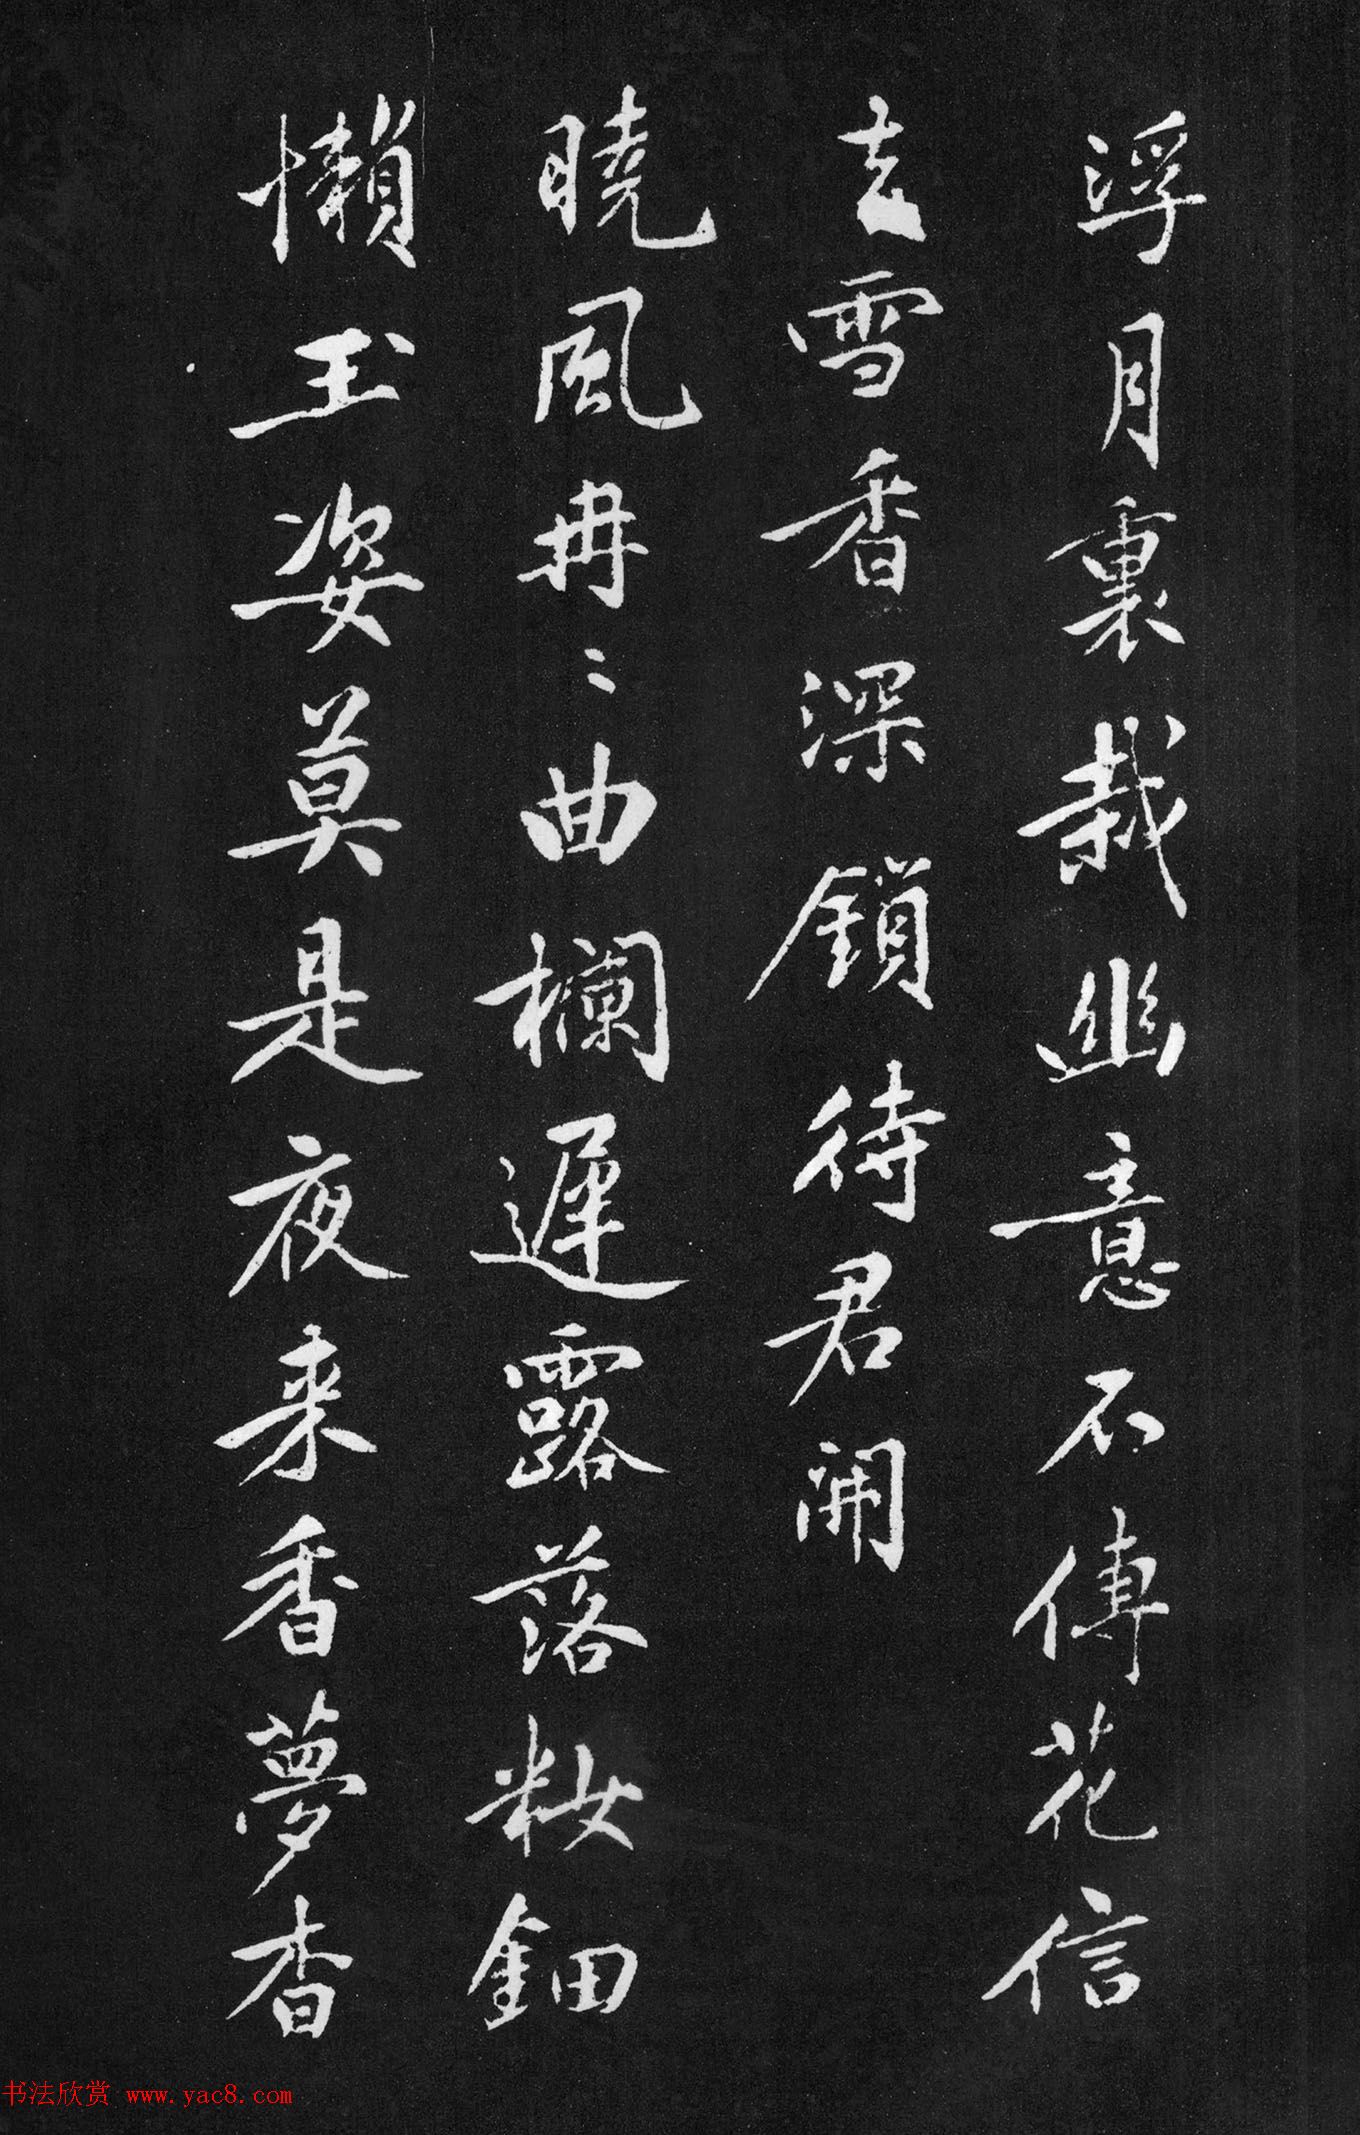 浮月裏栽幽意不傳花信
去雪香深鎖待君開
曉風冉〻曲欄遲露落妝鈿
懶玉姿莫是夜来香夢杳
书法欣赏 www.yac8.com